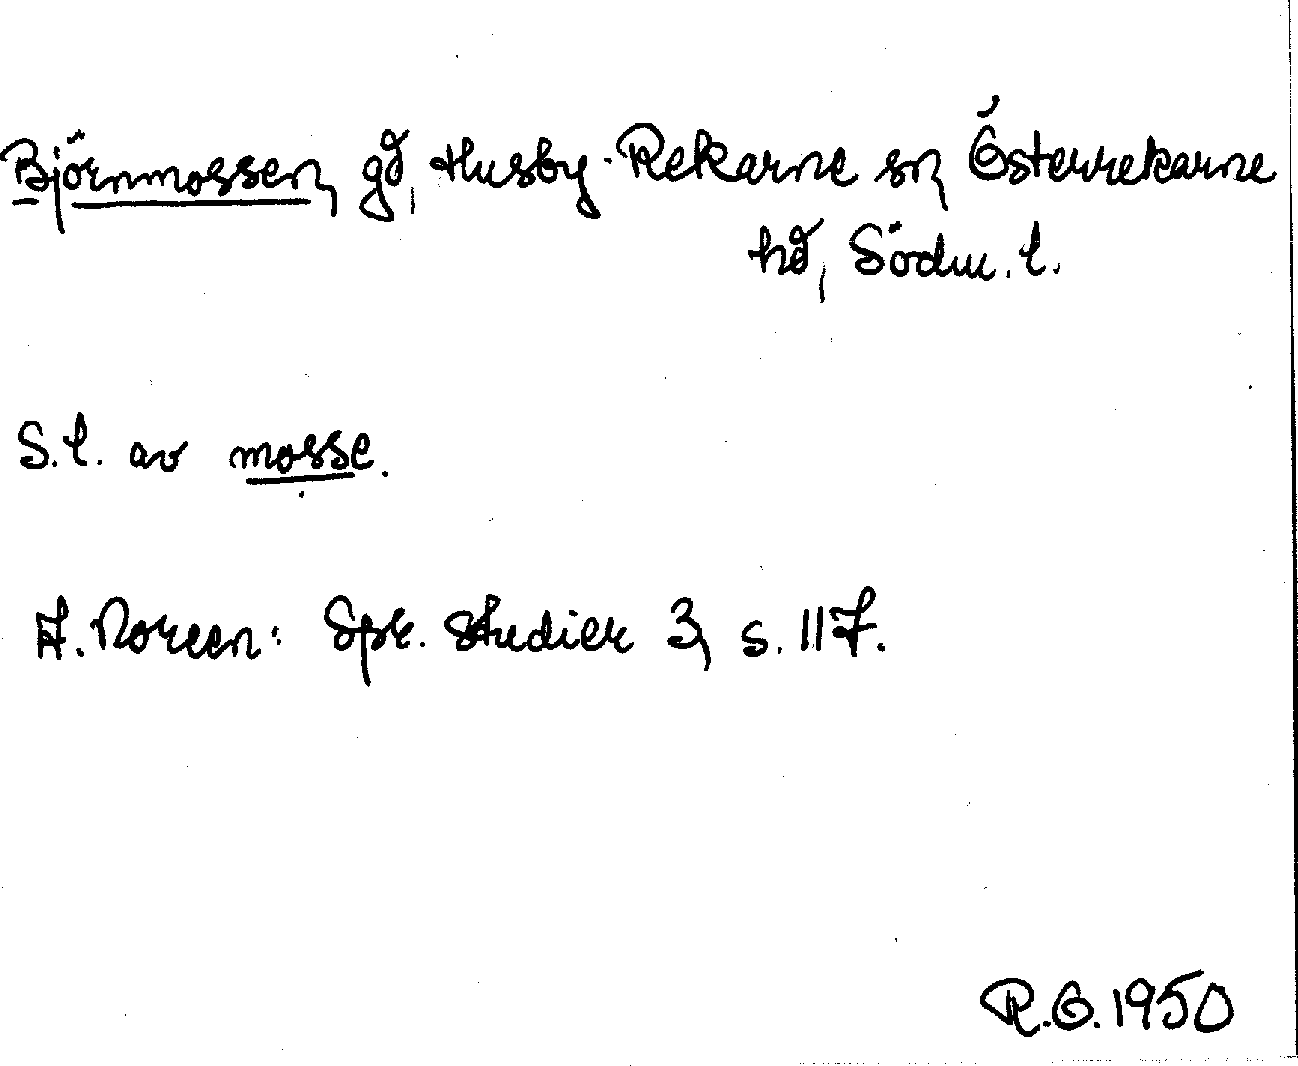 Björnmossen, gd, Husby-Rekarne sn, Österrekarne
hd, Södm. l.
S.l. av mosse.
A. Noreen: Spr. studier 3, s. 117.
R.G. 1950